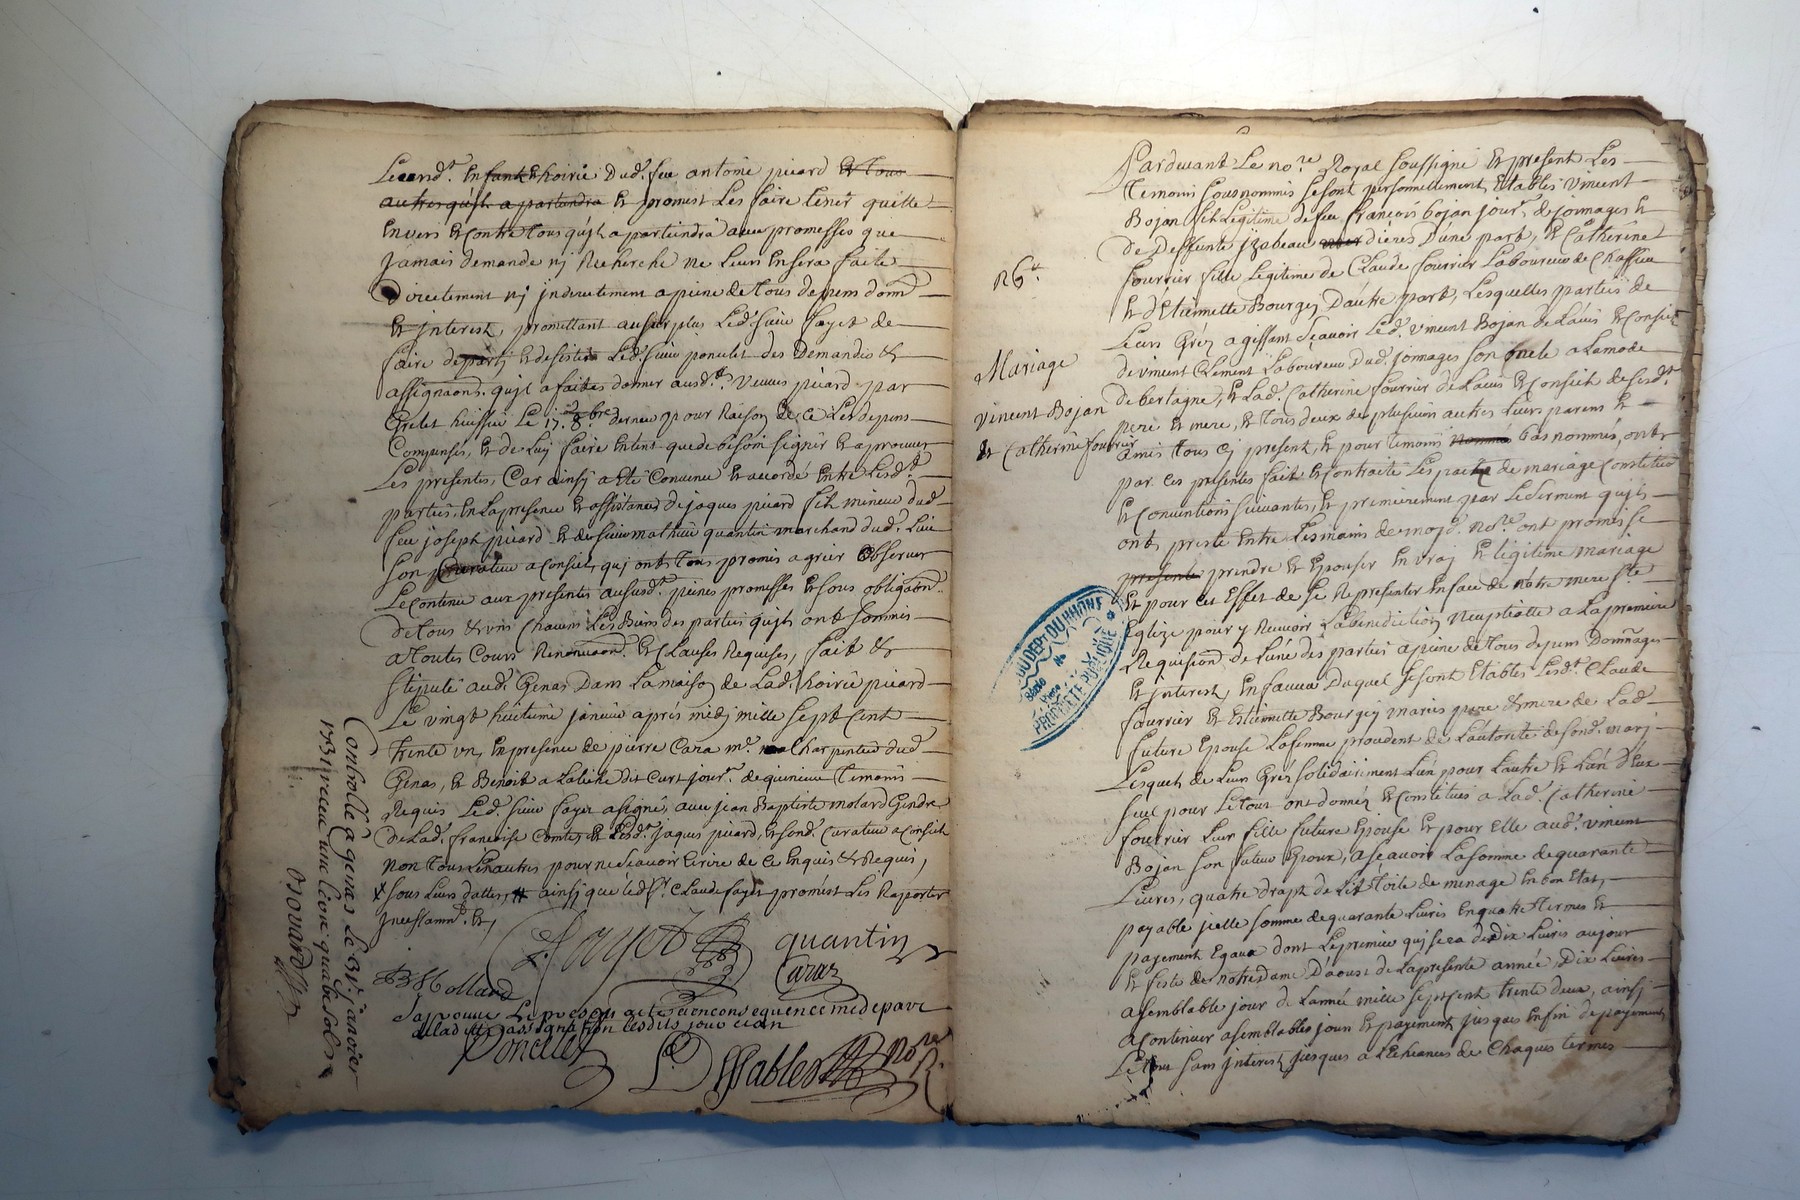 Enfans Ehoirie Dud. feu antoine picard Et Tous
autres qu'il apartiendra Et promest Les faire tenir quitte
Envers Et Contre tous qu'il apartiendra avec promesses que
jamais demande nj Recherche ne Leurs En sera faite
Directement nj jndirectement a peine de tous depens domd
Et jnterest, promettant au surplus Led. sieur fayet de
faire deparj Et desister Led. sieur poncelet des Demandes &
assignaons. qu'il a faites donner ausd.tes Veuves picard par
Grelet huissier Le 17. 8bre dernier pour Raison de ce Les depens
Compensés, Et de Luy faire En tens que de besoin signer Et aprouver
Les presentes, Car ainsy a Eté Convenu Et accordé Entre Lesd.tes
parties, En La presence Et assistance de jaques picard fils mineur dud.
feu joseph picard Et de sieur mathieu quantin marchand dud. Lieu
son Curateur a Conseil, quj ont tous promis agréer observer
Le Contenu aux presentes aususd.tes peines promesses Et sous obligaon.
de tous & uns Chacuns Les Biens des parties qu'ils ont soumis
a toutes Cours Renonciaon. Et Clauses Requises, fait &
stipulé aud. Genas Dans La maison de Lad. hoirie picard
Le vingt huitieme janvier aprés midj mille sept Cent
trente un, En presence de pierre Cara m.e Charpentier dud.
Genas, Et Benoit a Laliere dit Curt jour.r de Temoins
Requis Led. sieur fayet a signé, avec jean Baptiste molard Gendre
de Lad. francoise Comte, Et Lesd.ts jaques picard, Et sond. Curateur a Conseil
non tous Les autres pour ne sçavoir Ecrire de ce Enquis & Requis,
sous Leurs dattes, ainsj que led sr. Claude fayet promest Les Raporter
jncessamnt. &,
fayet quantin
JB Mollard Cara
Japrouve Le presens acte et en consequence me depare
de lad assignation lesdits jour et an
Poncelet
Dessables Nore R.
Controllé a genas Le 31e janvier
1731 receu une livre quatre sols
Bouvard
Pardevant Le nore Royal soussigné Et present Les
Temoins sousnommés se sont personnellement Etablis Vincent
Bojan fils Legitime de feu francois bojan jour.r de jonnages Et
de Deffunte jzabeau dieres D'une part, Et Catherine
fourrier fille Legitime de Claude fourrier Laboureur de Chassieu
Et d'Etiennette Bourgey D'autre part, Lesquelles parties de
Leurs Gréz agissant sçavoir Led. Vincent Bojan de L'avis Et Conseil
de vincent Clement Laboureur dud. jonnages son oncle a La mode
de bertagne, Et Lad. Catherine fourrier de L'avis Et Conseil de sesd.ts
pere Et mere, Et tous deux de plusieurs autres Leurs parens Et
amis tous cj present, Et pour temoins nommés bas nommés, ont
par ces presentes fait Et Contracté Les pactes de mariage Constitution
Et Conventions suivantes, Et premierement par Le serment qu'ils
ont presté Entre Les mains de mojd. nore. ont promis se
presente prendre Et Epouser En vraj Et legitime mariage
Et pour cet Effet de se Representer En face de nôtre mere ste.
Eglize pour y Recevoir La benediction Nuptialle a La premiere
Requision. de L'une des parties a peine de tous depens Dommages
Et jnterest, En faveur Duquel se sont Etablis Lesd.ts Claude
fourrier Et Etiennette Bourgey mariés pere & mere de Lad.
future Epouse La femme procedent de L'autorité de sond. marj
Lesquels de Leurs Gréz solidairement L'un pour L'autre Et L'un D'Eux
seul pour Le tout ont donnéz Et Constitués a Lad. Catherine
fourrier Leur fille future Epouse Et pour Elle aud. vincent
Bojan son futur Epoux, a sçavoir La somme de quarante
Livres, quatre drapt de Lit toile de menage En bon Etat,
payable jcelle somme de quarante Livres En quatre termes Et
payement Egaux dont Le premier quj sera de dix Livres au jour
Et feste de notre dame D'aoust de La presente année, Dix Livres
a semblable jour de L'année mille sept cent trente deux, ainsj
a Continuer a semblables jours Et payement jusques En fin de payement
Le tout sans jnterest jusques a L'Echeances de Chaques termes
Mariage
Vincent Bojan
& Catherine fourrier
DU DEPT DU RHONE
PROPRIETE PUBLIQUE